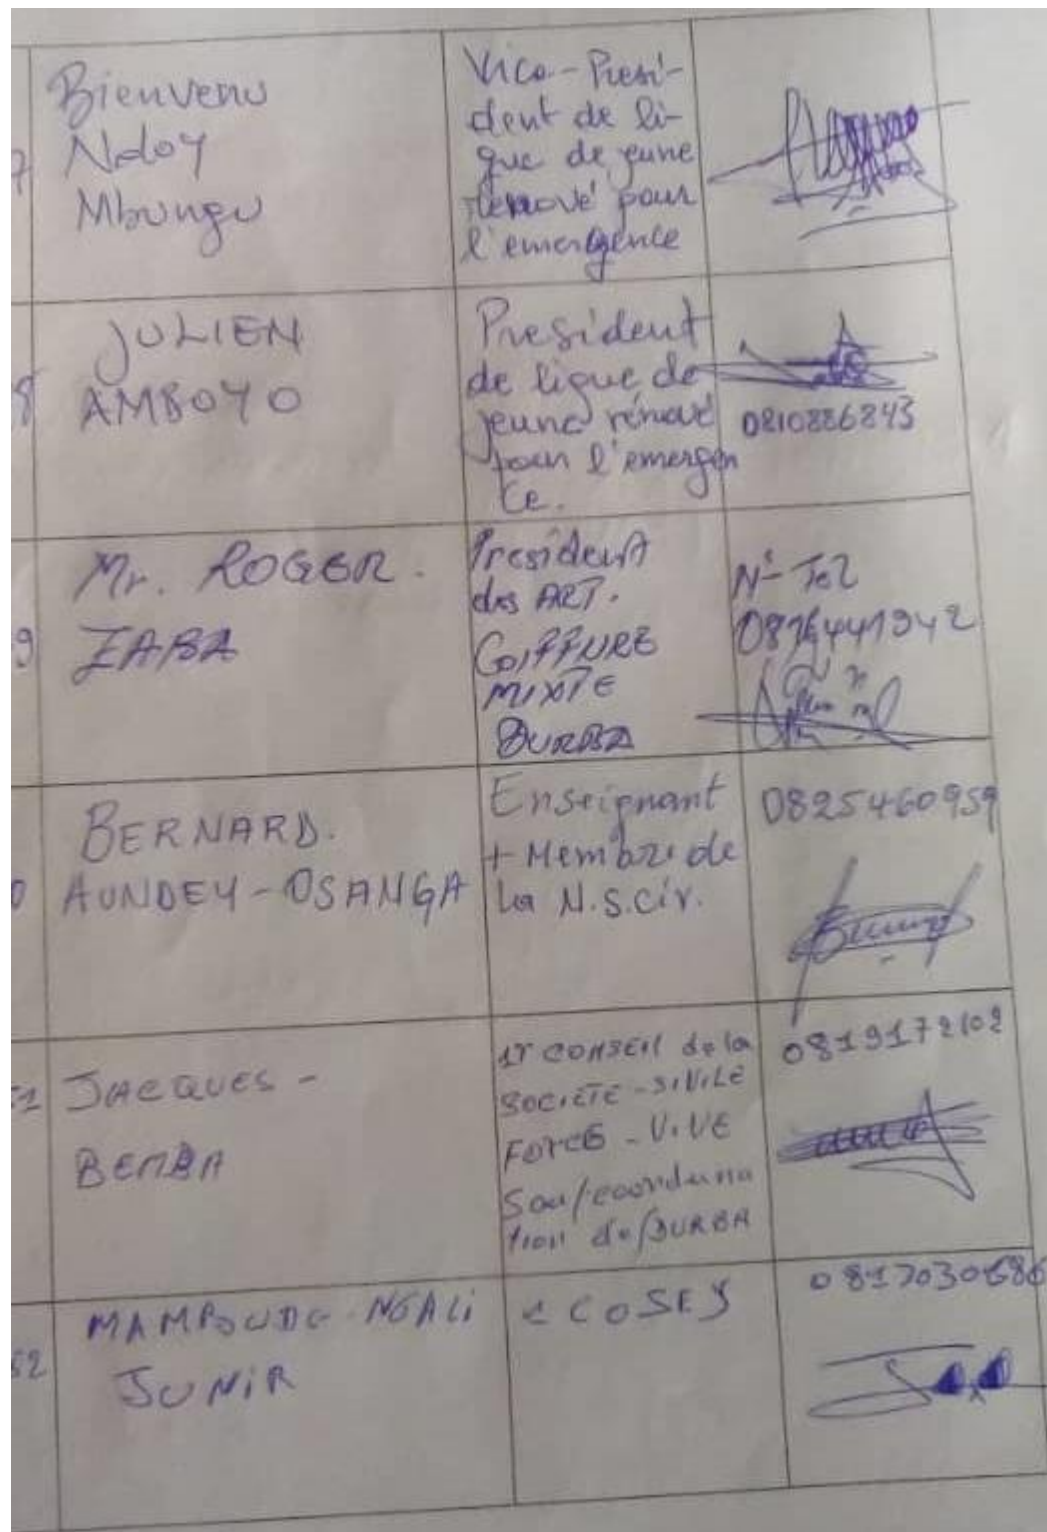 7
Bienvenu
Ndoy
Mbungu
Vice-Presi-
dent de li-
gue de jeune
renové pour
l'emergence
8
JULIEN
AMBOYO
President
de ligue de
jeune rénové
pour l'emergen
ce.
0810886843
9
Mr. ROGER.
ZABA
President
des ART.
COIFFURE
MIXTE
DURBA
N° Tel
0
BERNARD.
AUNDEY-OSANGA
Enseignant
+ Membre de
la N.S.civ.
0825460959
51
JACQUES -
BEMBA
1r CONSEIL de la
SOCIETE-SIVILE
FORCE-VIVE
Sou/coorduna
tion de/DURBA
0819172102
52
NGALI
JUNIR